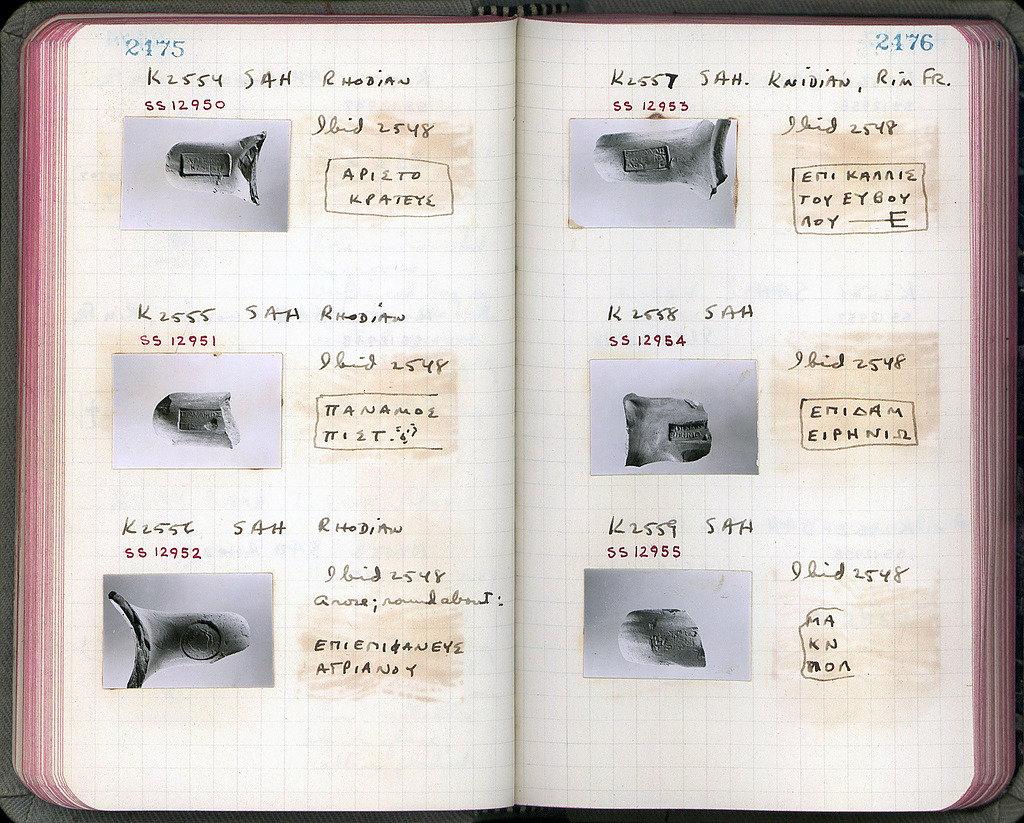 2475
K2554 SAH RHODIAN
SS 12950
Ibid 2548
ΑΡΙΣΤΟ
ΚΡΑΤΕΥΣ
K2555 SAH RHODIAN
SS 12951
Ibid 2548
ΠΑΝΑΜΟΣ
ΠΙΣΤ.
K2556 SAH RHODIAN
SS 12952
Ibid 2548
A rose; round about:
ΕΠΙΕΠΙΦΑΝΕΥΣ
ΑΓΡΙΑΝΟΥ
2476
K2557 SAH. KNIDIAN, RIM FR.
SS 12953
Ibid 2548
ΕΠΙ ΚΑΛΛΙΣ
ΤΟΥ ΕΥΒΟΥ
ΛΟΥ — Ε
K2558 SAH
SS 12954
Ibid 2548
ΕΠΙΔΑΜ
ΕΙΡΗΝΙΩ
K2559 SAH
SS 12955
Ibid 2548
ΜΑ
ΚΝ
ΠΟΛ